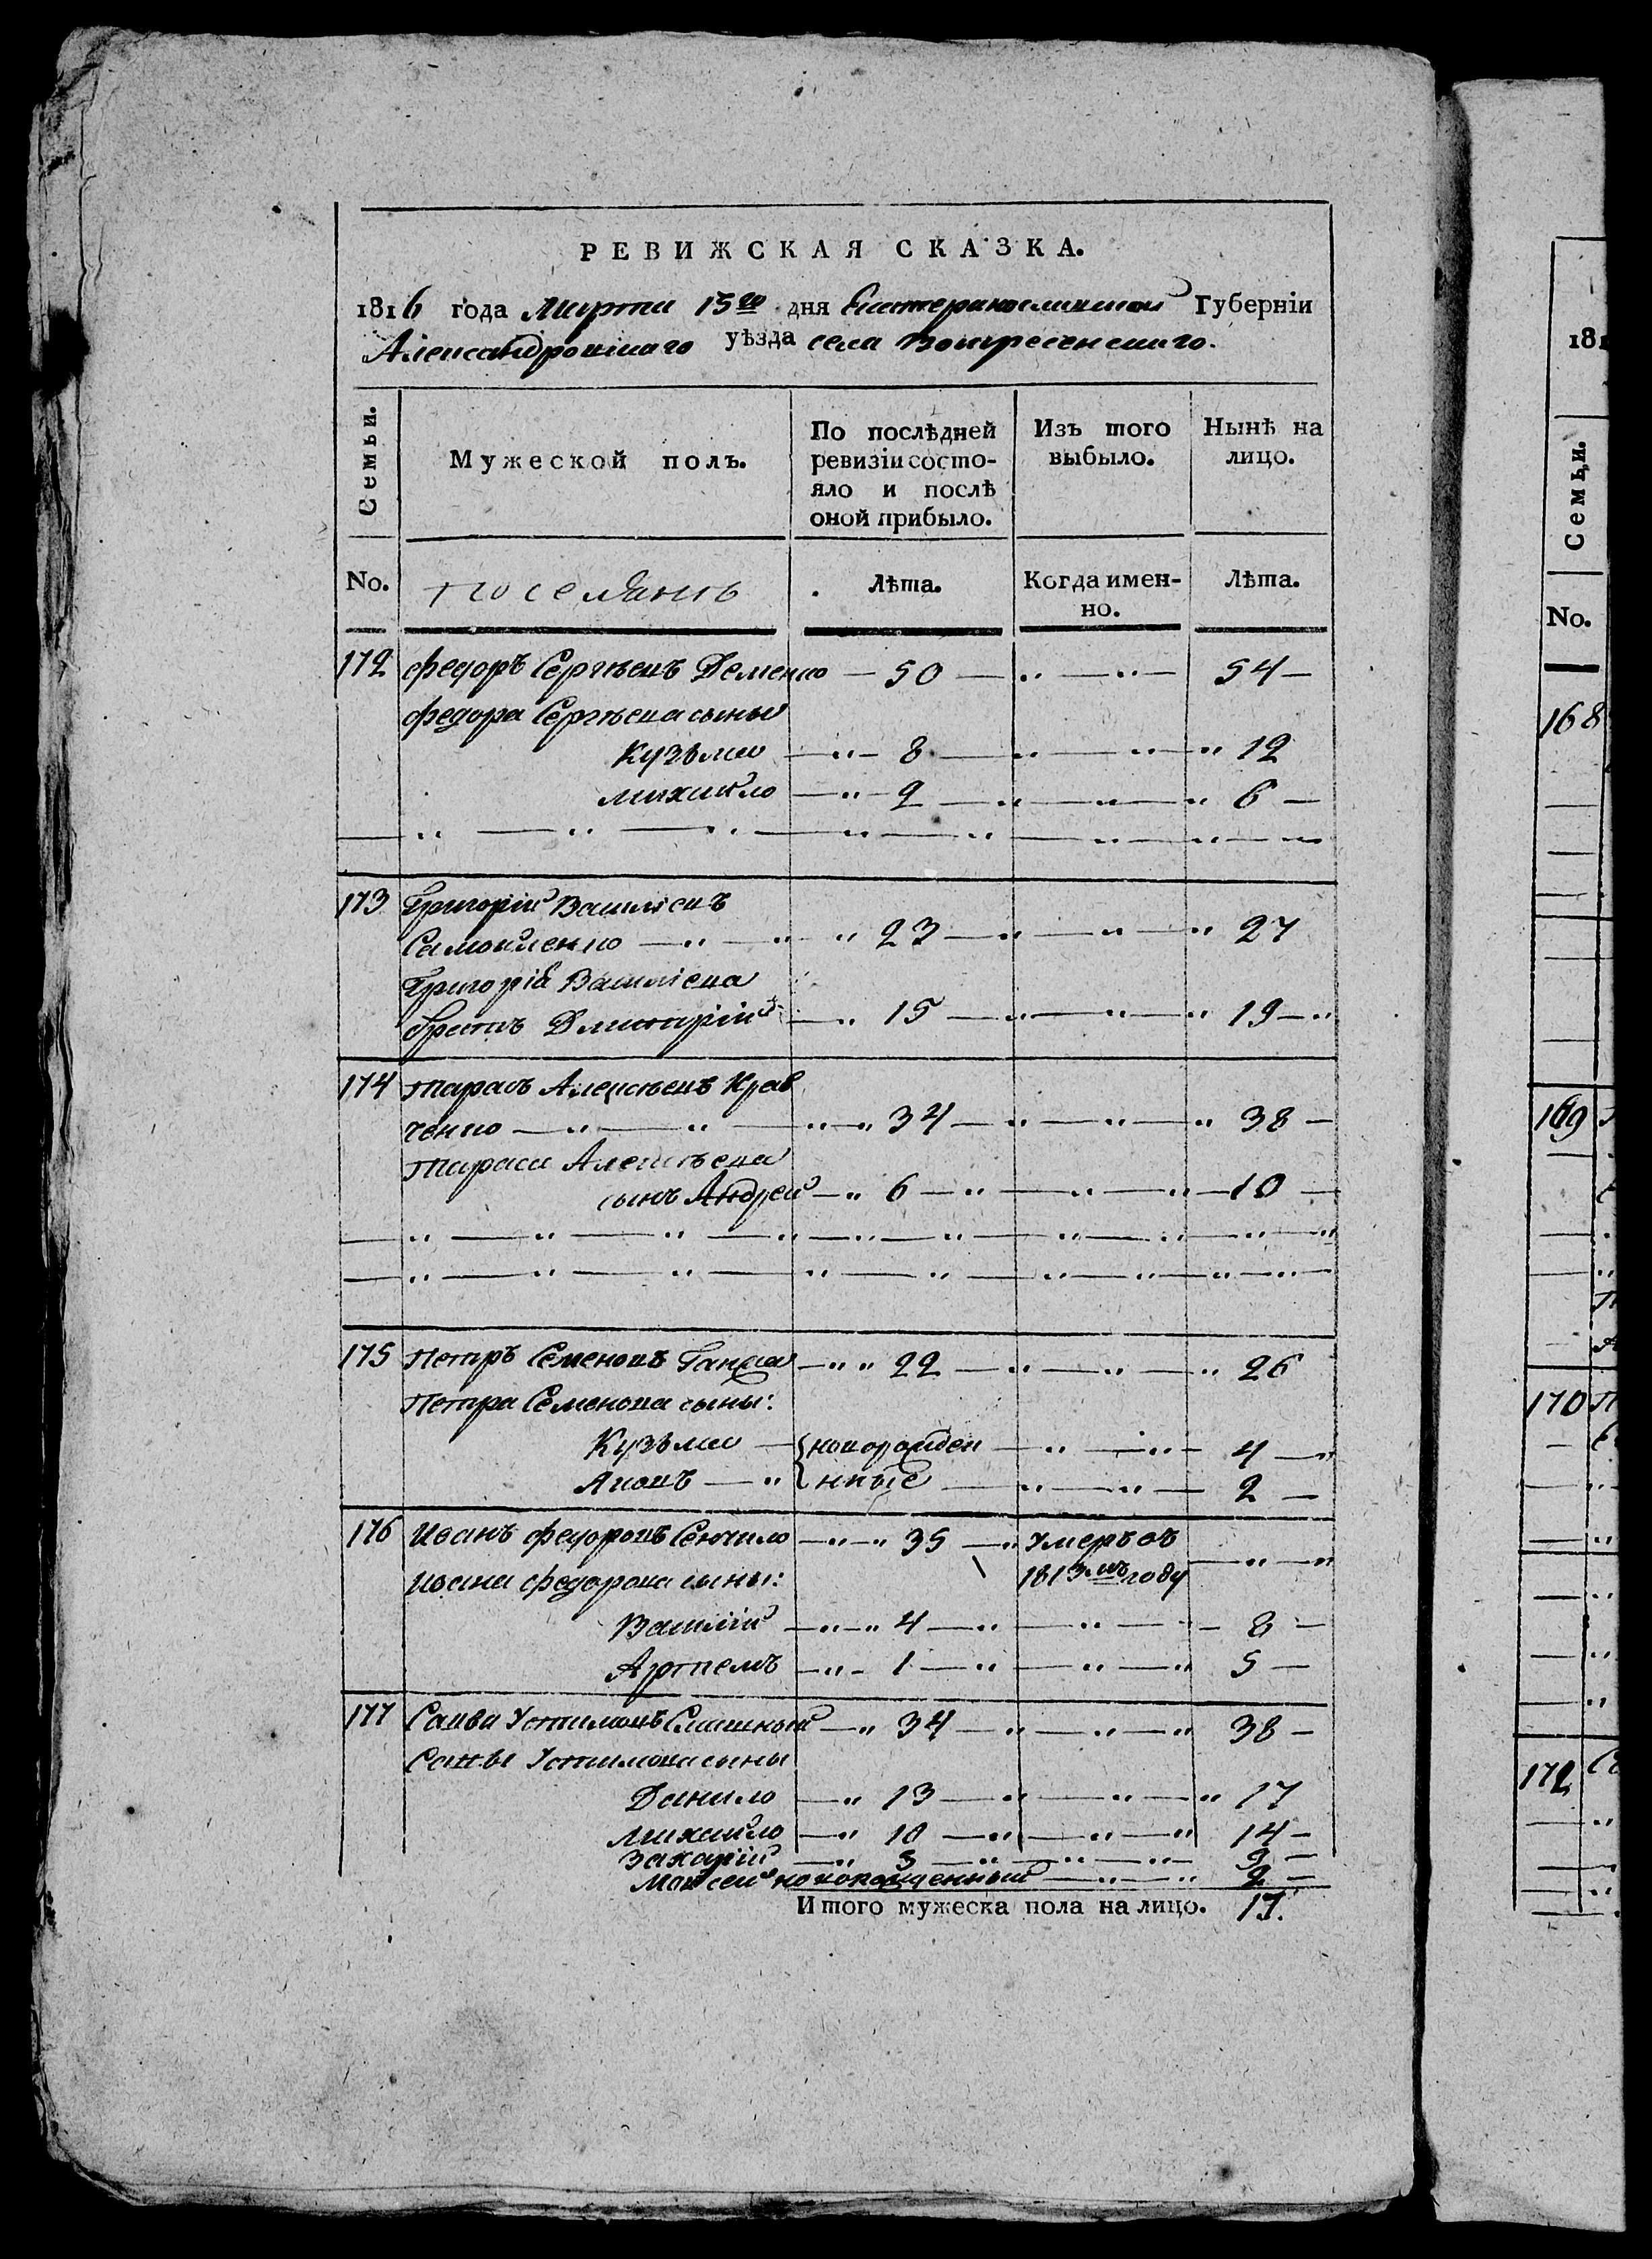 РЕВИЖСКАЯ СКАЗКА.
1816 года Марта 15го дня Екатеринославской Губерніи
Александровскаго уѣзда села Воскресенскаго.
Семьи.
Мужеской полъ.
По послѣдней ревизіи состо-
яло и послѣ
оной прибыло.
Изъ того
выбыло.
Нынѣ на
лицо.
No.
Поселянъ
Лѣта.
Когда имен-
но.
Лѣта.
172 Федоръ Сергѣевъ Деменко — 50 — „ — „ — 54 —
Федора Сергѣева сыны
Кузьма — „ — 8 — „ — „ — „ 12
Михайло — „ — 2 — „ — „ — „ 6 —
173 Григорій Василіевъ
Самойленко — „ — „ „ 23 — „ — „ — „ 27
Григорія Василіева
братъ Дмитрій — „ 15 — „ — „ — „ 19 — „
174 Тарасъ Алексѣевъ Крав
ченко — „ — „ — „ — „ 34 — „ — „ — „ 38 —
Тараса Алексѣева
сынъ Андрей — „ 6 — „ — „ — „ — 10 —
175 Петръ Семеновъ Ганжа — „ „ 22 — „ — „ — „ 26
Петра Семенова сыны:
Кузьма — { новорожден — „ — „ — 4 — „
Аковъ — „ { нные — „ — „ — 2 —
176 Иванъ Федоровъ Сючило — „ — „ 35 — „ Умеръ въ
1813мъ году — „ — „
Ивана Федорова сыны:
Василій — „ — „ 4 — „ — „ — — 8 —
Артемъ — „ — 1 — „ — „ — „ 5 —
177 Савва Устимовъ Смашный — „ 34 — „ — „ — „ 38 —
Саввы Устимова сыны
Данило — „ 13 — „ — „ — „ 17
Михайло — „ 10 — „ — „ — „ 14 —
Захарій — „ 5 — „ — „ — „ — 9 —
Моисей новорожденный — „ — „ 2 —
Итого мужеска пола на лицо. 17.
181
Семьи.
No.
168
169
170
172